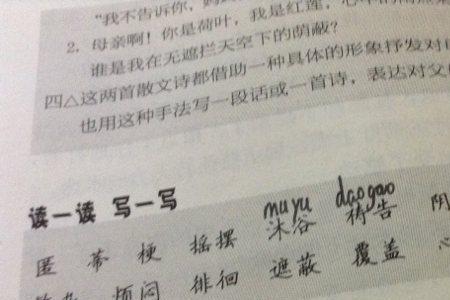 "我不告诉你,
2. 母亲啊!你是荷叶,我是红莲,心中的雨点来
谁是我在无遮拦天空下的荫蔽?
四△这两首散文诗都借助一种具体的形象抒发对
也用这种手法写一段话或一首诗,表达对父
读一读 写一写
muyu daogao
匿 蒂 梗 摇摆 沐浴 祷告 阴
烦闷 徘徊 遮蔽 覆盖 心